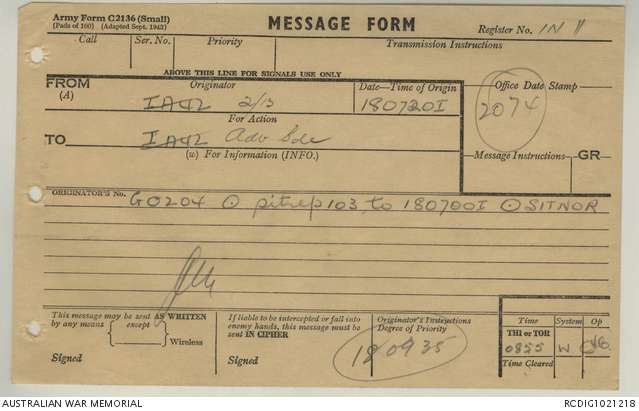 Army Form C2136 (Small)
(Pads of 100) (Adapted Sept. 1942)
MESSAGE FORM
Register No. IN 11
Call Ser. No. Priority Transmission Instructions
ABOVE THIS LINE FOR SIGNALS USE ONLY
FROM
(A)
Originator
Date-Time of Origin
Office Date Stamp
2/13
180720I
2074
For Action
TO
Adv Bde
(w) For Information (INFO.)
Message Instructions GR
ORIGINATOR'S No.
GO204 ⊙ pitrep 103 to 180700I ⊙ SITNOR
This message may be sent AS WRITTEN
by any means except
Wireless
Signed
If liable to be intercepted or fall into
enemy hands, this message must be
sent IN CIPHER
Signed
Originator's Instructions
Degree of Priority
180935
Time System Op
THI or TOR
0855 W
Time Cleared
AUSTRALIAN WAR MEMORIAL
RCDIG1021218